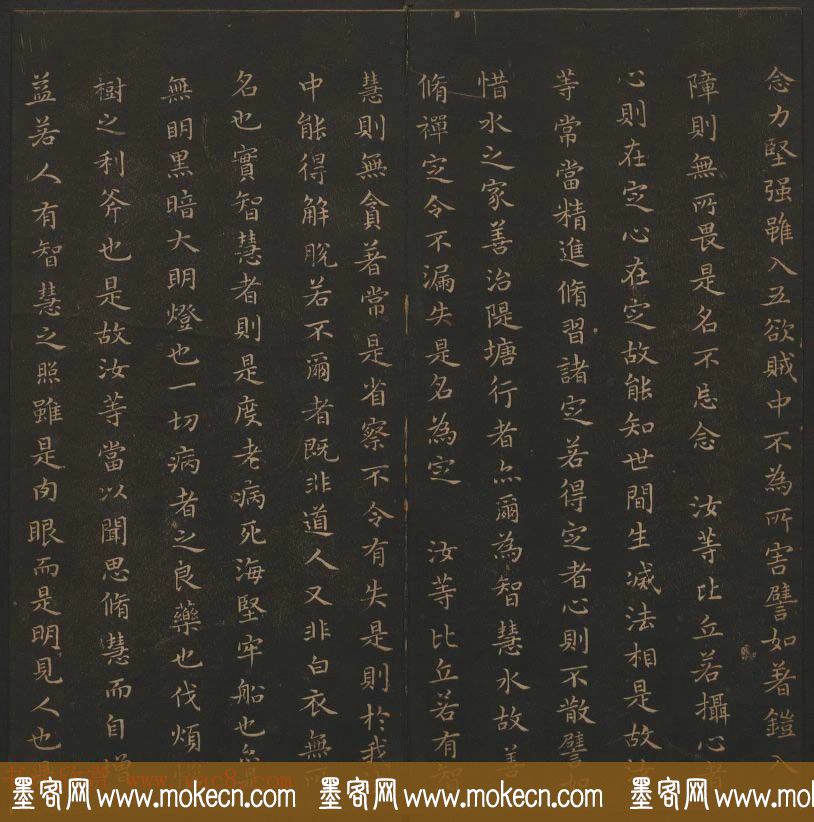 念力堅强雖入五欲賊中不為所害譬如著鎧入
障則無所畏是名不忘念 汝等比丘若攝心者
心則在定心在定故能知世間生滅法相是故汝
等常當精進脩習諸定若得定者心則不散譬如
惜水之家善治隄塘行者亦爾為智慧水故善
脩禪定令不漏失是名為定 汝等比丘若有智
慧則無貪著常是省察不令有失是則於我
中能得解脫若不爾者既非道人又非白衣無所
名也實智慧者則是度老病死海堅牢船也亦是
無明黑暗大明燈也一切病者之良藥也伐煩惱
樹之利斧也是故汝等當以聞思脩慧而自增
益若人有智慧之照雖是肉眼而是明見人也是
墨客网 www.mokecn.com 墨客网 www.mokecn.com 墨客网 www.